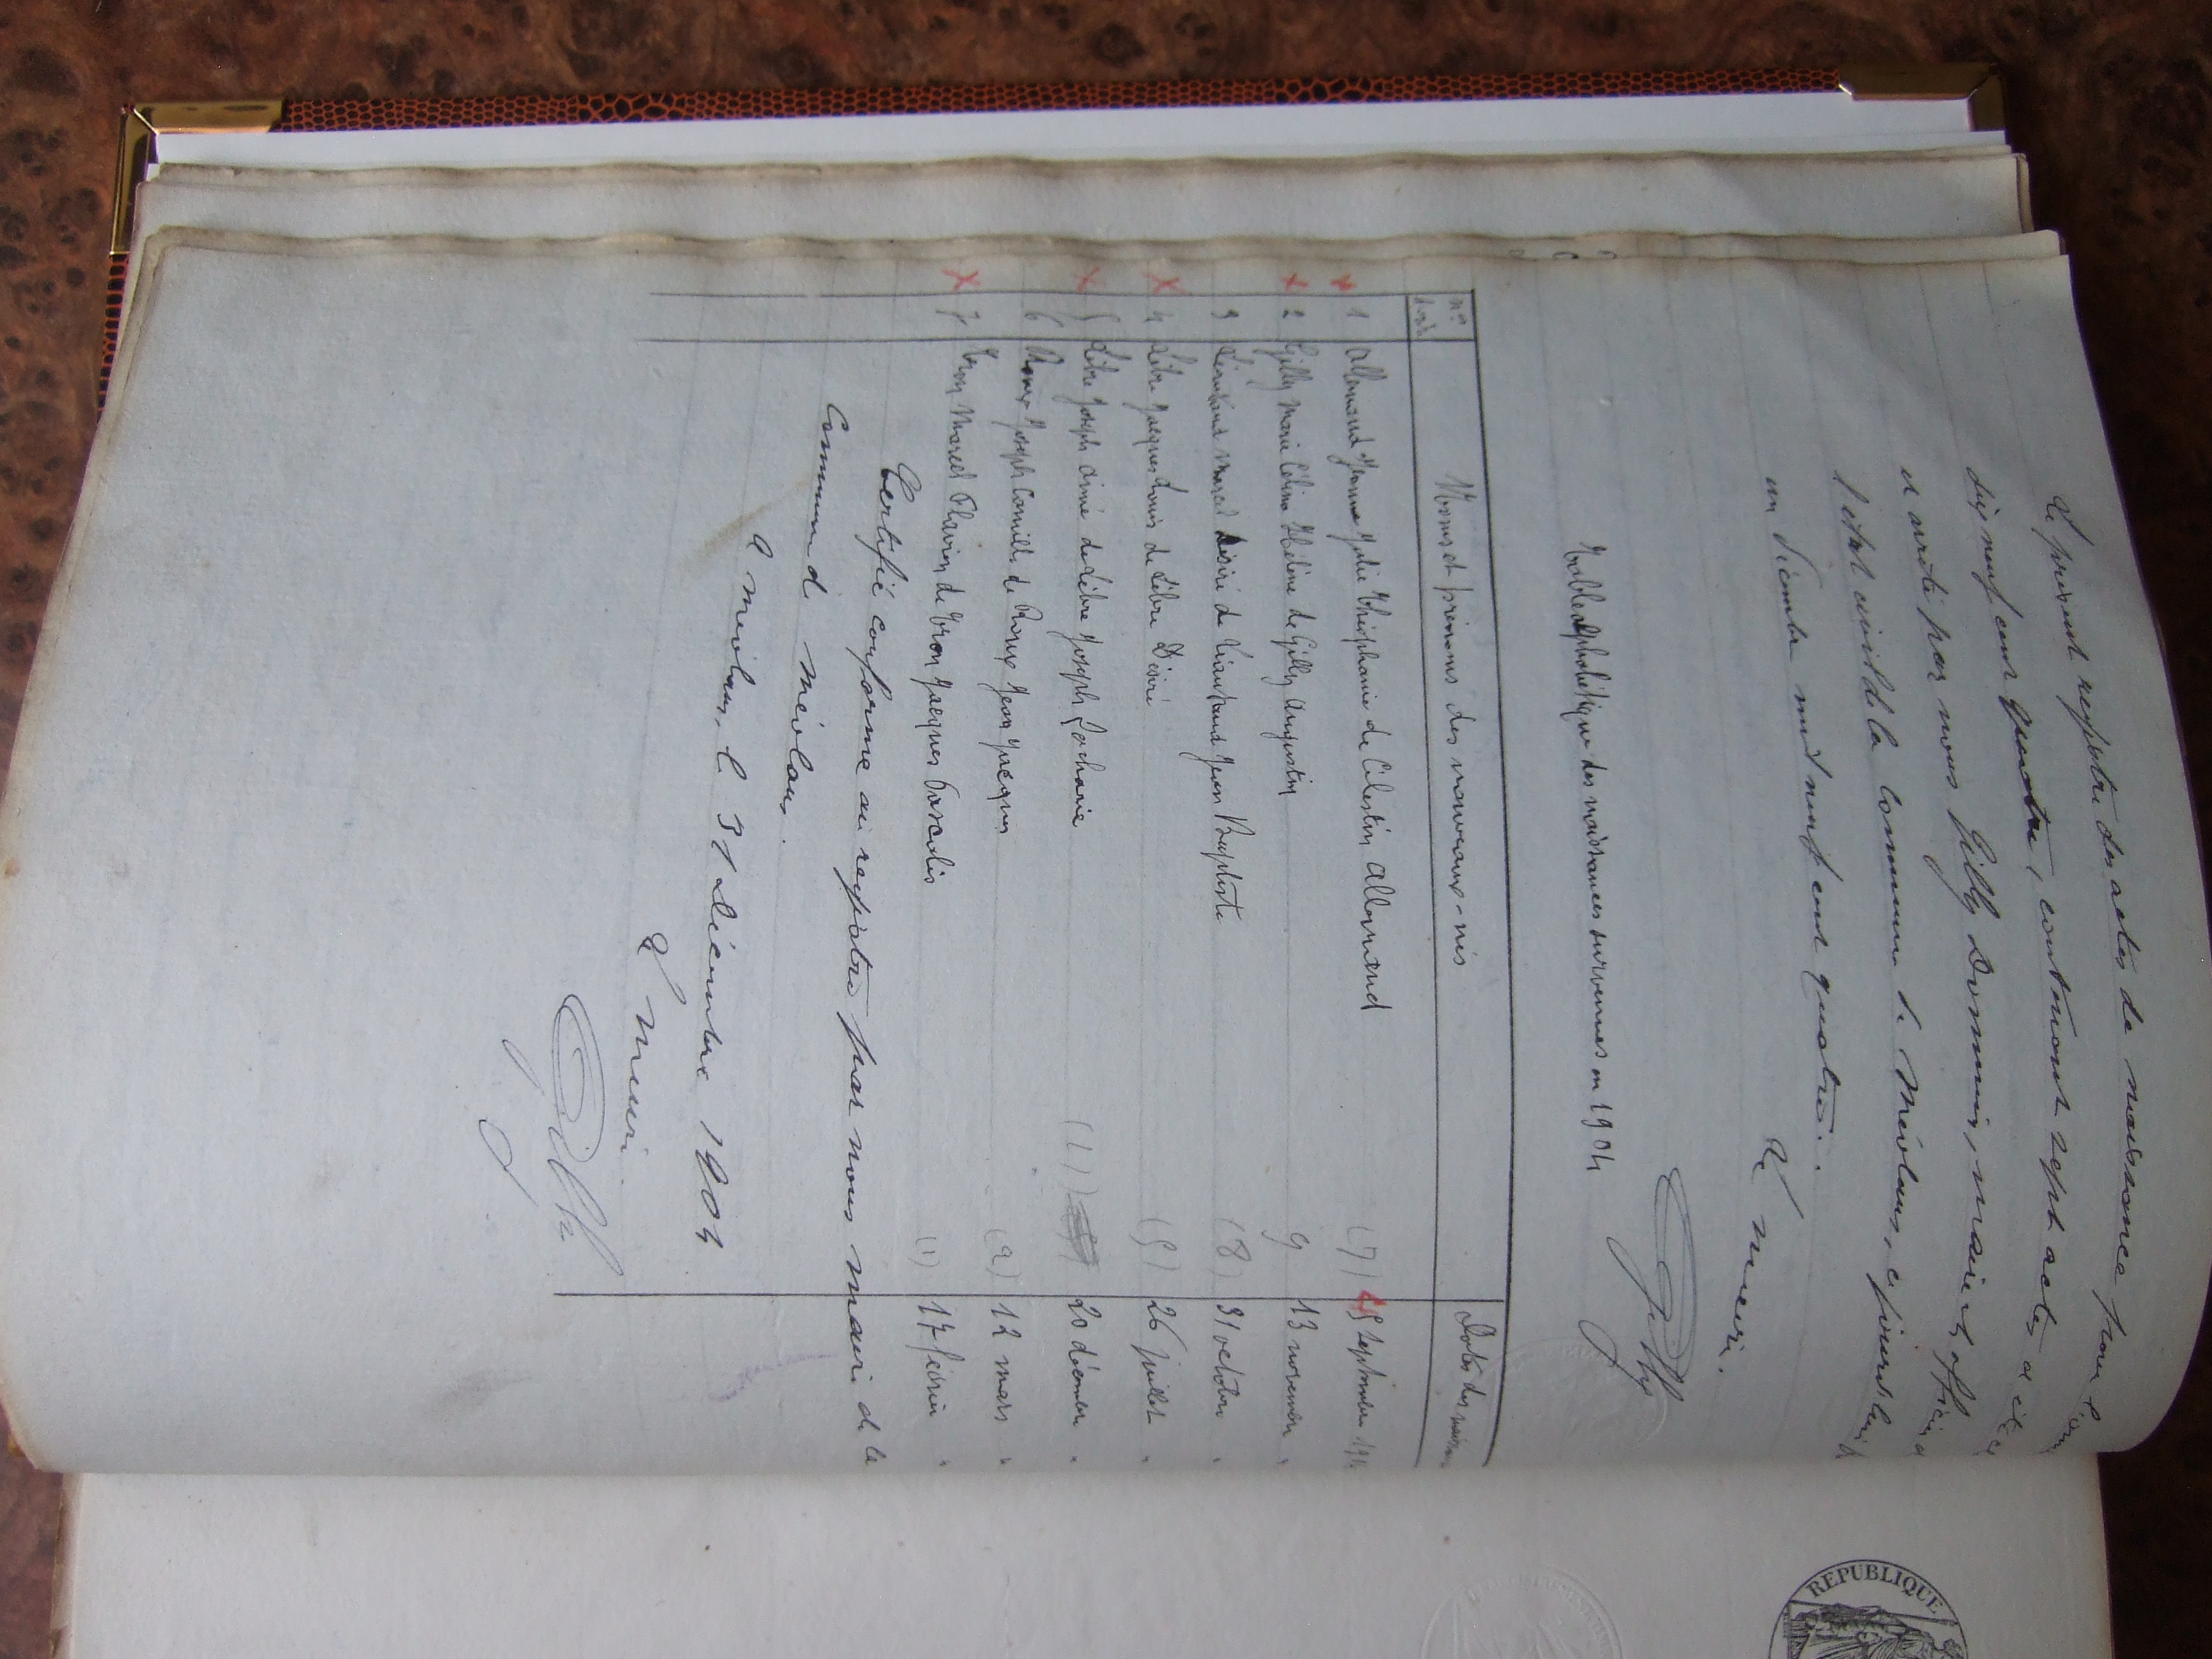 Le présent registre des actes de naissance pour l'an
dix neuf cent quatre, contenant sept actes a été
et arrêté par nous Gilly Dominis, maire et officier d
l'état civil de la commune de Méolans, ce jourd'hui
un Décembre mil neuf cent quatre.
Le Maire.
Gilly
Table alphabétique des naissances survenues en 1904
Nos d'ordre Noms et prénoms des nouveaux-nés Dates des naissan
1 Allemand Jeanne Julie Théophanie de Célestin Allemand (7) 15 septembre 1904
2 Gilly Marie Céline Hélène de Gilly Augustin 9 13 novembre "
3 Léautaud Marcel Désiré de Léautaud Jean Baptiste (8) 31 octobre "
4 Lèbre Jacques Louis de Lèbre Désiré (5) 26 juillet "
5 Lèbre Joseph Aimé de Lèbre Joseph Zacharie (1) 20 décembre "
6 Roux Joseph Camille de Roux Jean Jacques (2) 12 mars "
7 Tron Marcel Flavien de Tron Jacques Pascalis (1) 17 février "
Certifié conforme au registre par nous maire de la
Commune de Méolans.
A Méolans, le 31 Décembre 1904
Le Maire
Gilly
REPUBLIQUE